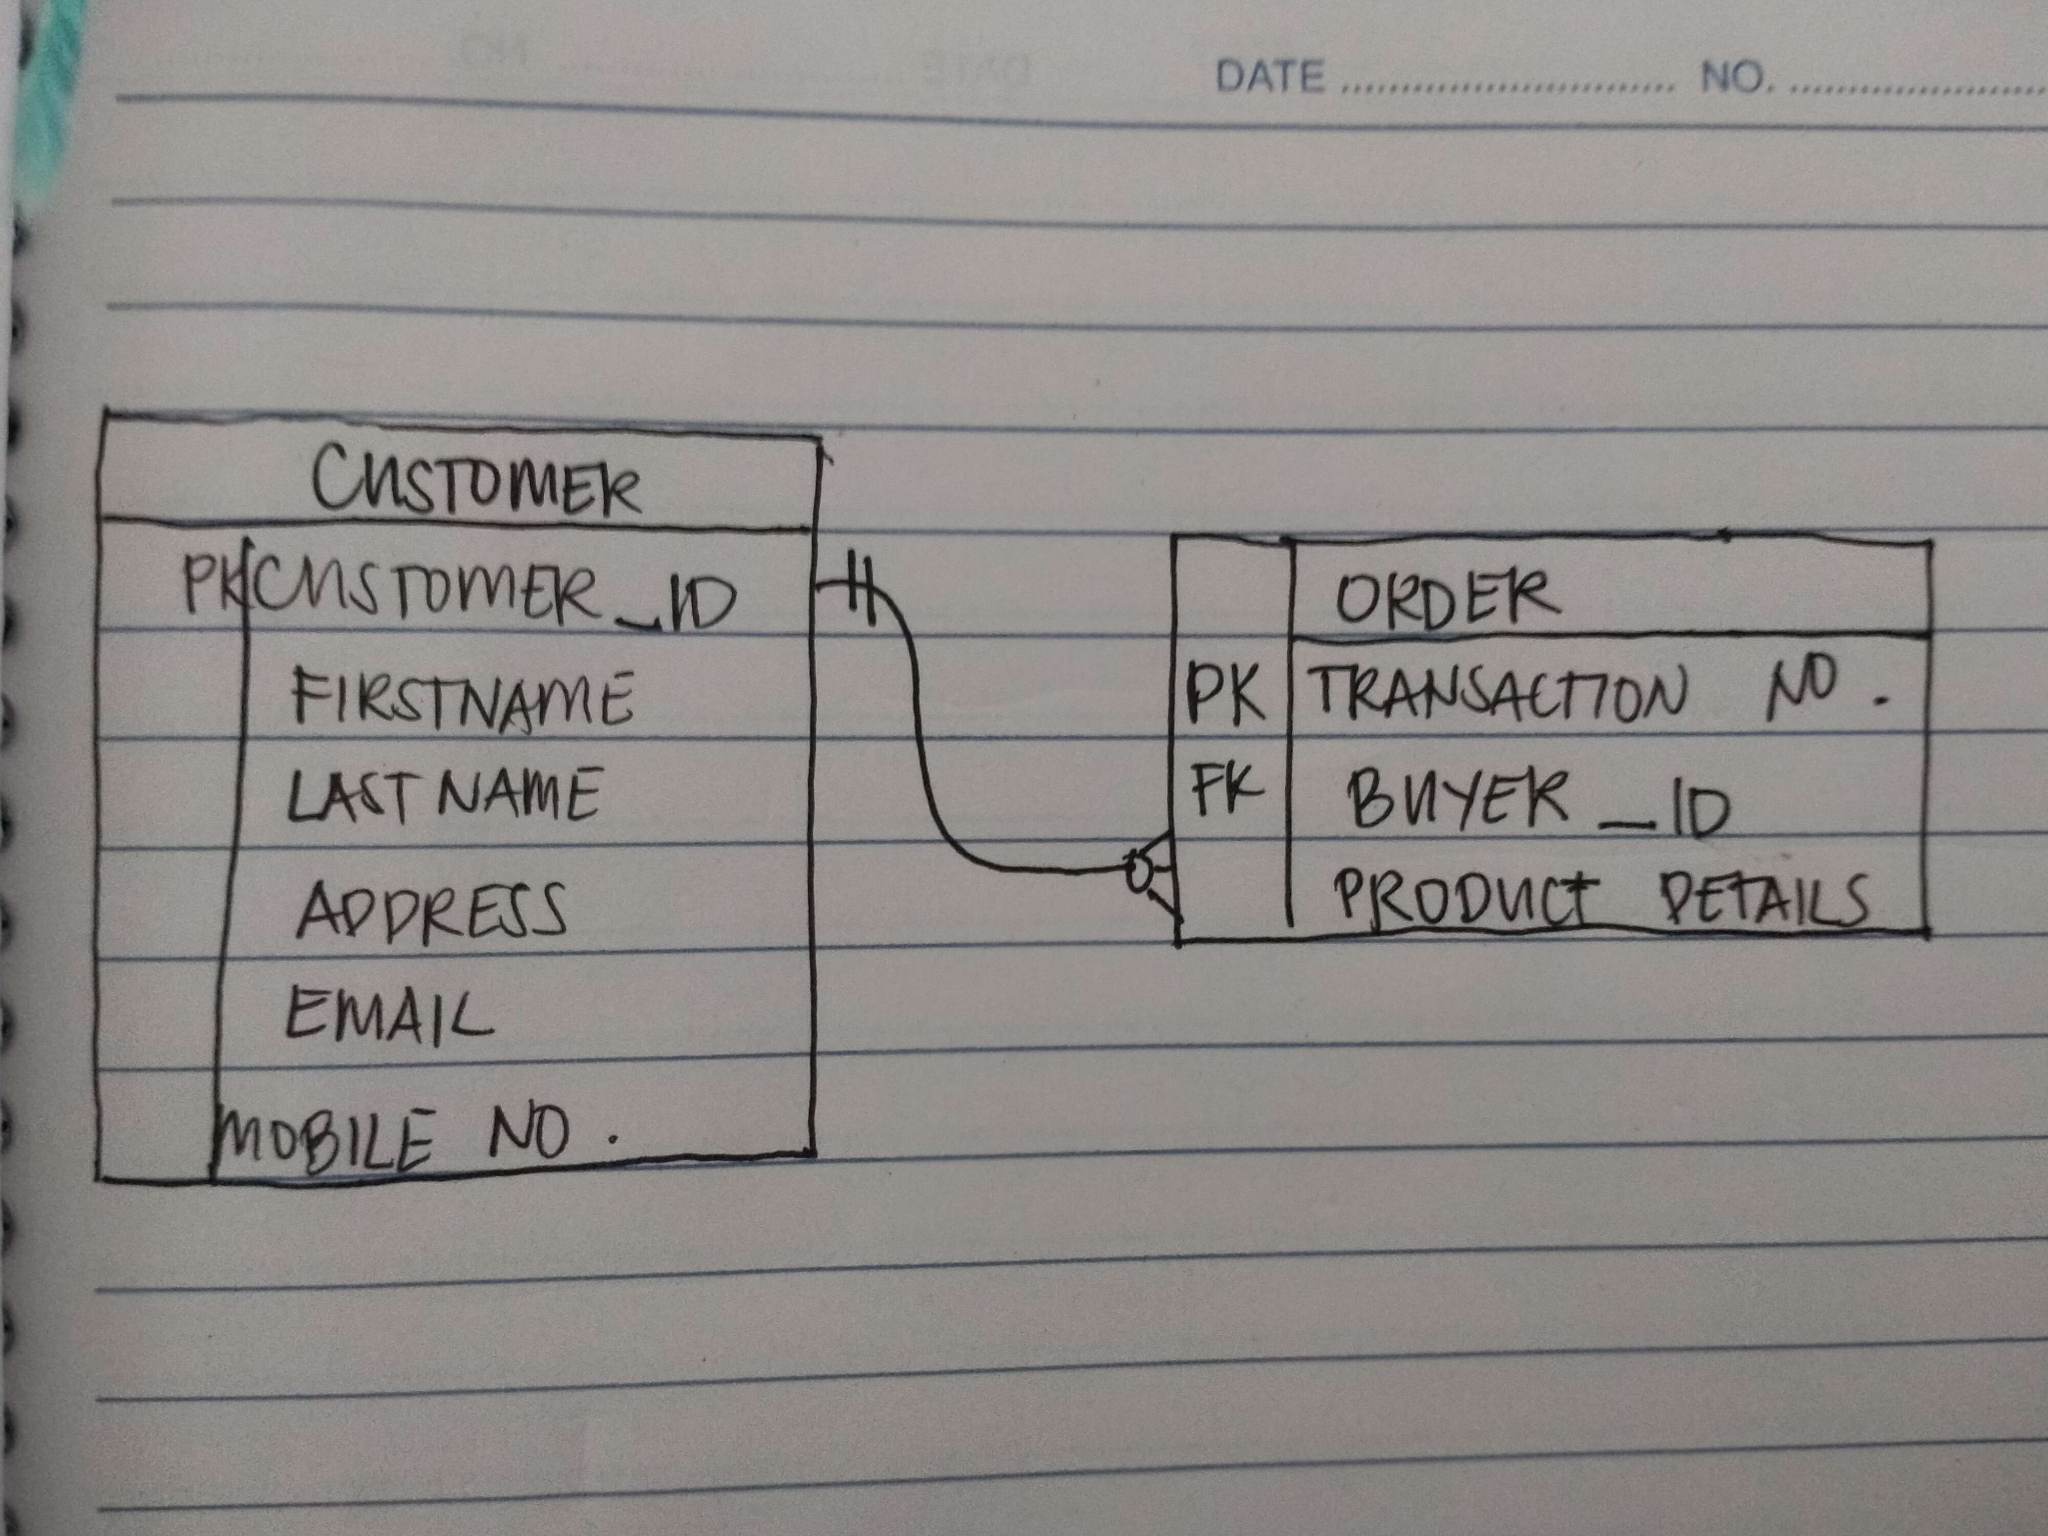 DATE NO.
CUSTOMER
PK CUSTOMER_ID
FIRSTNAME
LASTNAME
ADDRESS
EMAIL
MOBILE NO.
ORDER
PK TRANSACTION NO.
FK BUYER_ID
PRODUCT DETAILS